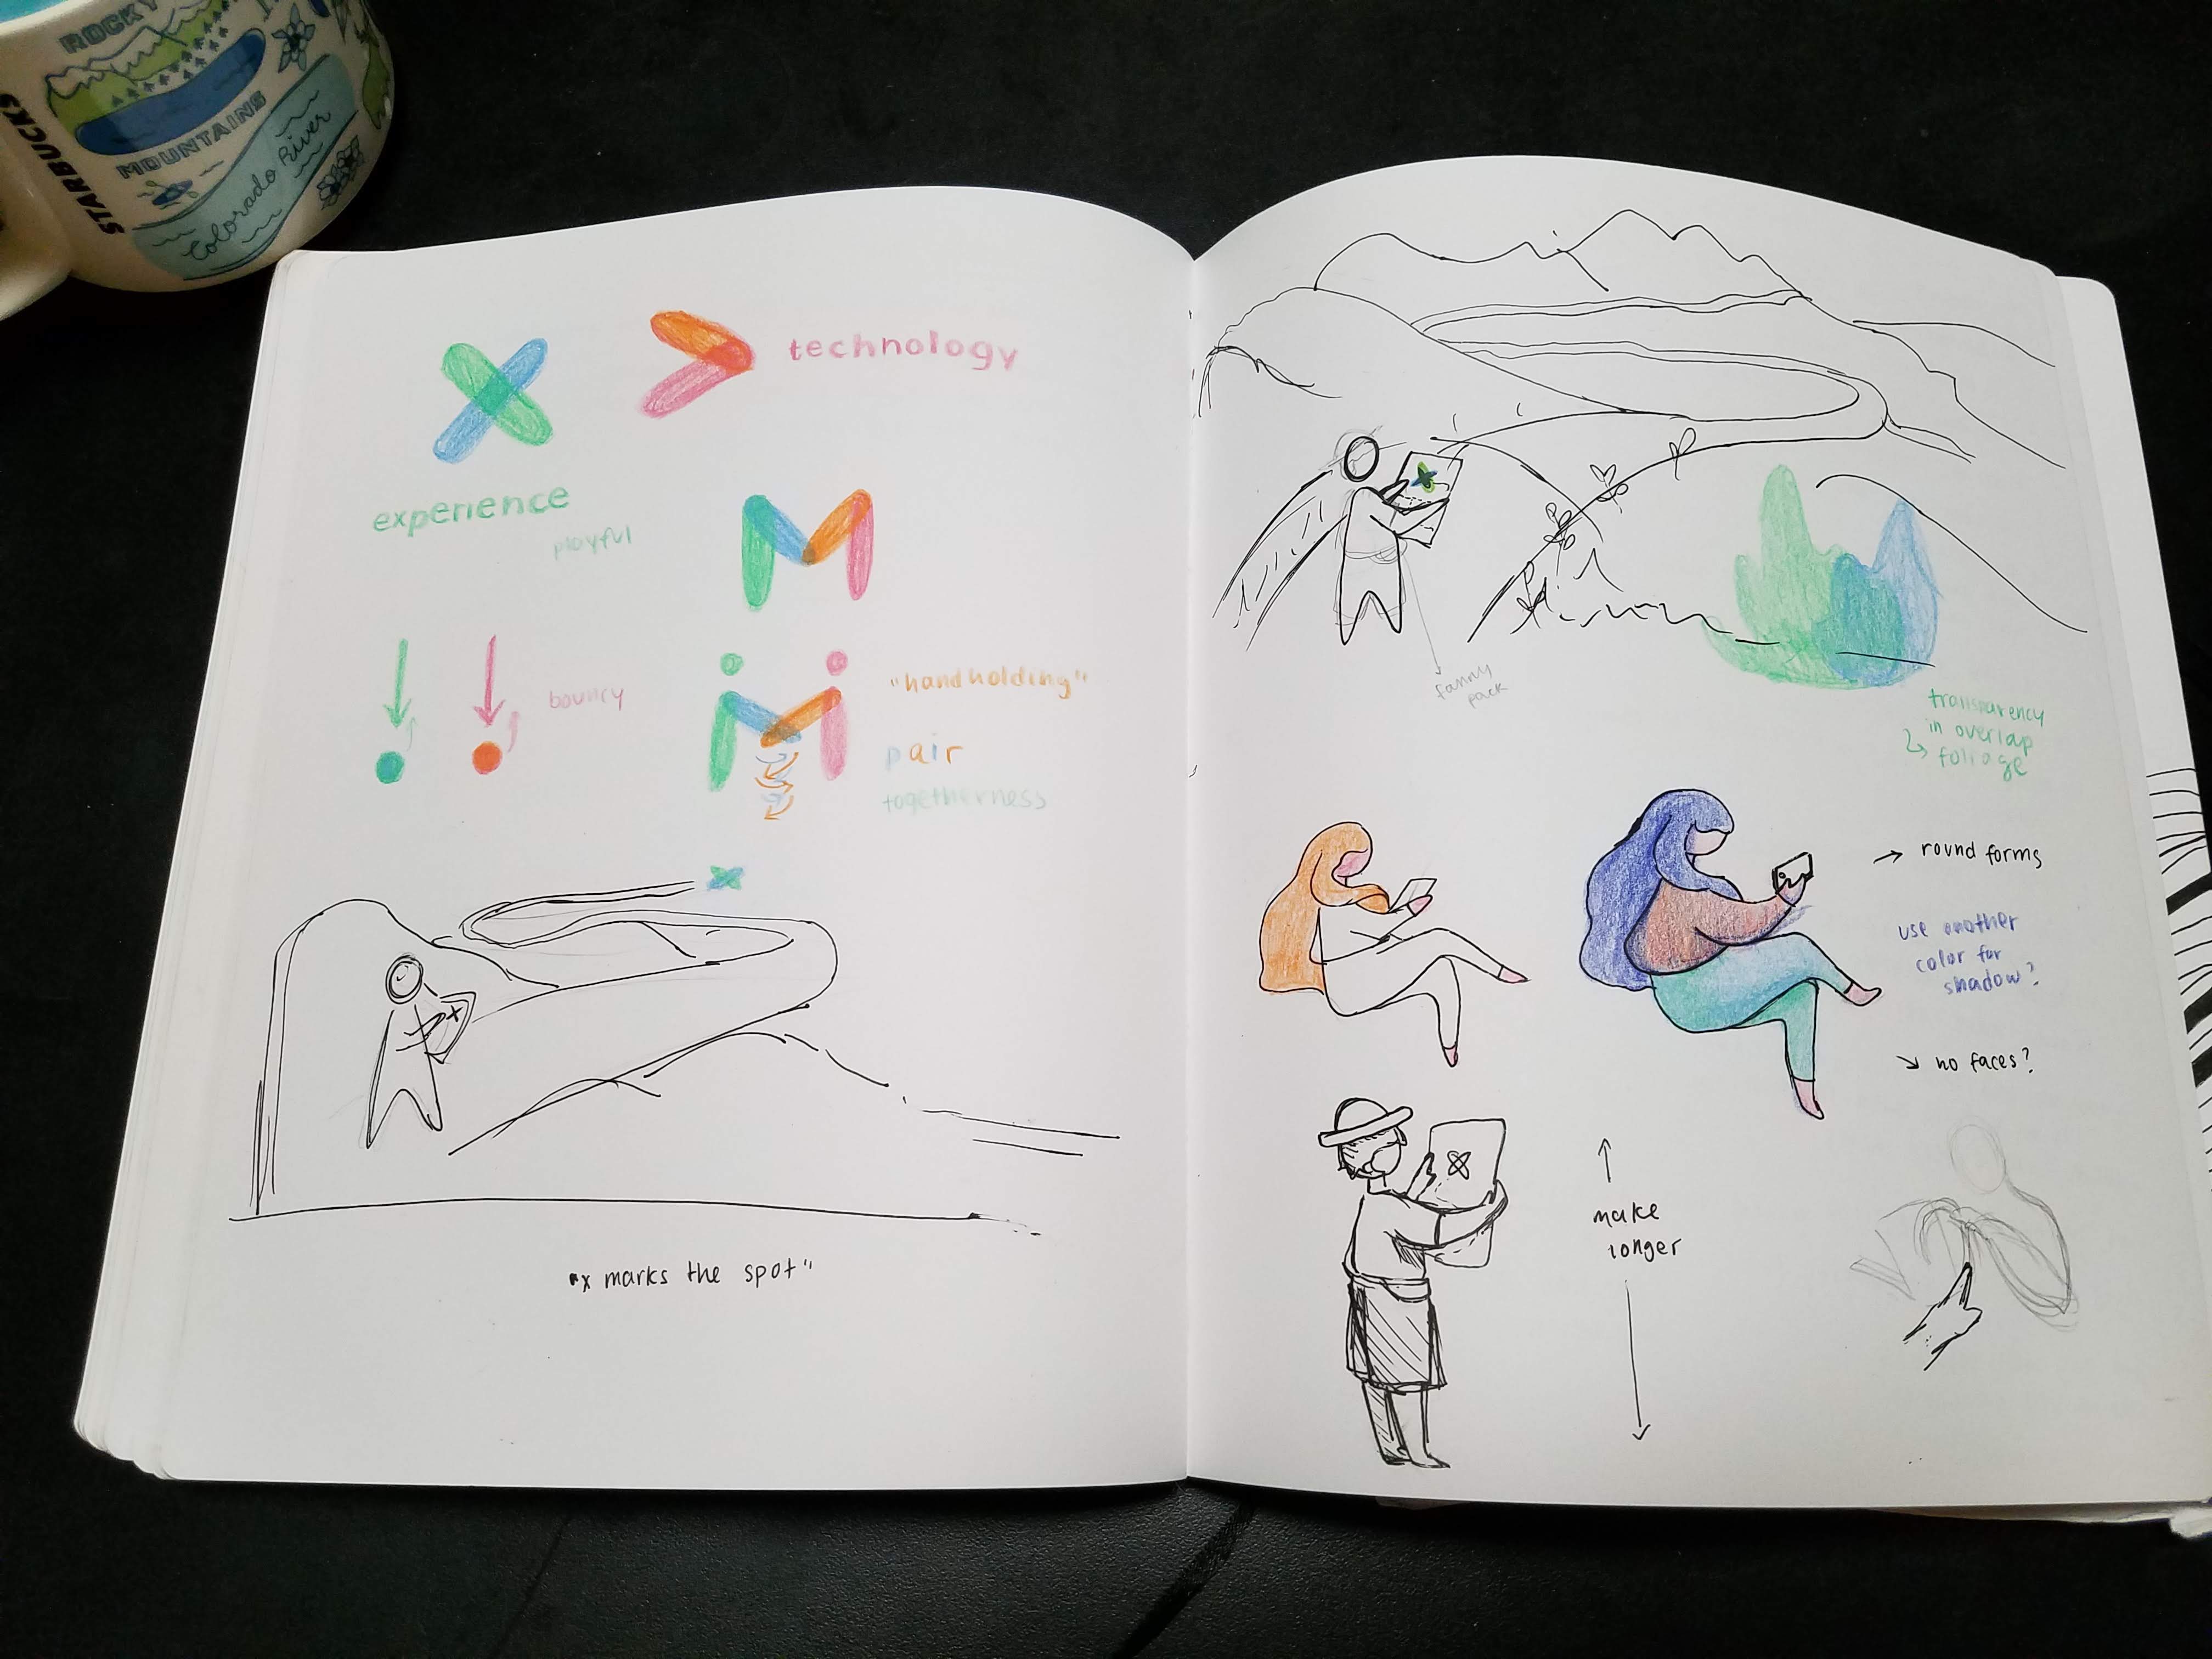 ROCKY
MOUNTAINS
STARBUCKS
Colorado River
technology
experience
playful
bouncy
"handholding"
pair
togetherness
"x marks the spot"
fanny
pack
transparency
in overlap
foliage
round forms
use another
color for
shadow?
no faces?
make
longer